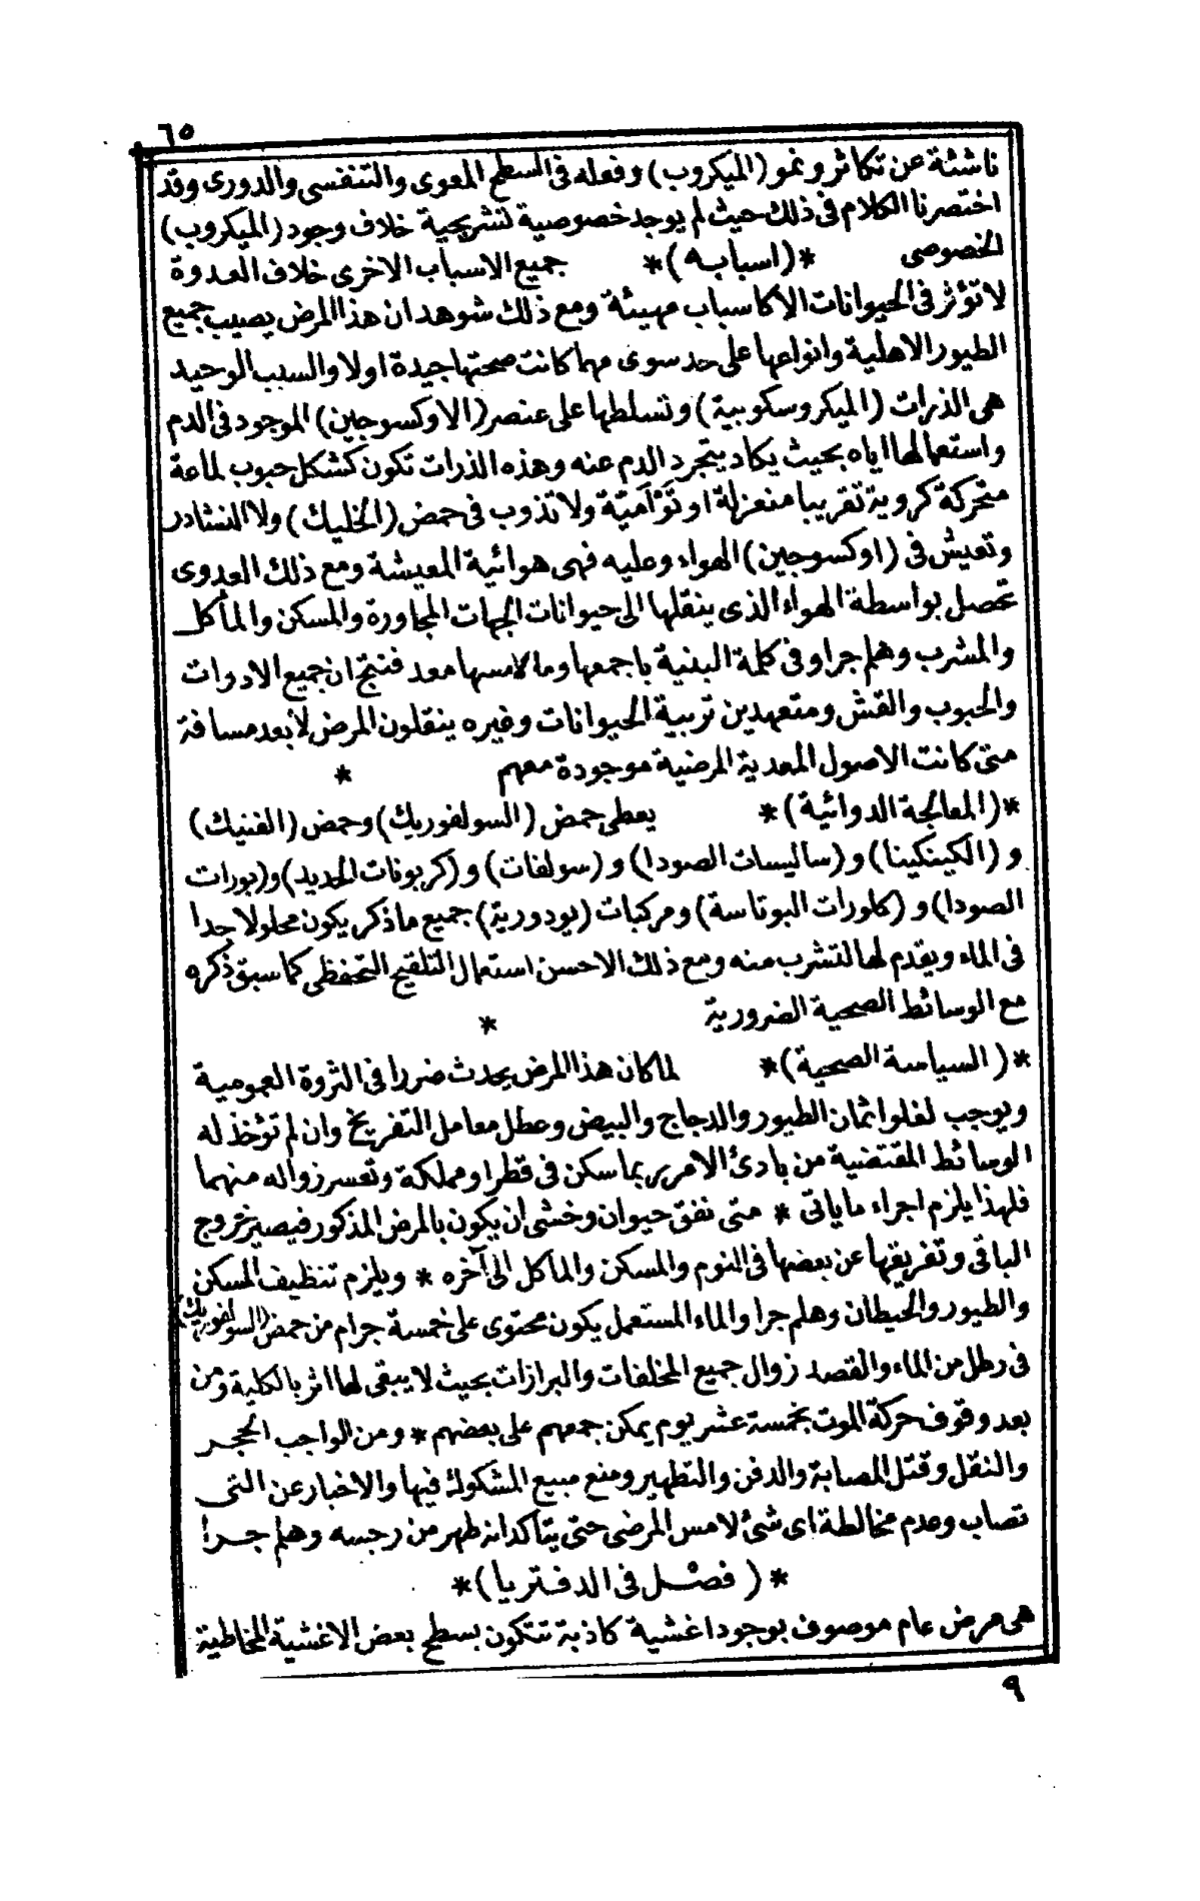 ٦٥
ناشئة عن تكاثر ونمو (الميكروب) وفعله فى السطح المعوى والتنفسى والدورى وقد
اختصرنا الكلام فى ذلك حيث لم يوجد خصوصية تشريحية خلاف وجود (الميكروب)
الخصوصى *(اسبابه)* جميع الاسباب الاخرى خلاف العدوة
لا تؤثر فى الحيوانات الا كاسباب مهيئة ومع ذلك شوهد ان هذا المرض يصيب جميع
الطيور الاهلية وانواعها على حد سوى مهما كانت صحتها جيدة او لا والسبب الوحيد
هى الذرات (الميكروسكوبية) وتسلطها على عنصر (الاوكسوجين) الموجود فى الدم
واستعمالها اياه بحيث يكاد يتجرد الدم عنه وهذه الذرات تكون كشكل حبوب لماعة
متحركة كروية تقريبا منعزلة او توٴامية ولا تذوب فى حمض (الخليك) ولا النشادر
وتعيش فى (اوكسوجين) الهواء وعليه فهى هوائية المعيشة ومع ذلك العدوى
تحصل بواسطة الهواء الذى ينقلها الى حيوانات الجهات المجاورة والمسكن والمأكل
والمشرب وهلم جرا وفى كلمة البنية باجمعها وما لامسها معد فنتج ان جميع الادوات
والحبوب والقش ومتعهدين تربية الحيوانات وغيره ينقلون المرض لابعد مسافة
متى كانت الاصول المعدية المرضية موجودة معهم *
*(المعالجة الدوائية)* يعطى حمض (السولفوريك) وحمض (الفنيك)
و (الكينكينا) و (ساليسات الصودا) و (سولفات) و (كربونات الحديد) و (بورات
الصودا) و (كلورات البوتاسة) ومركبات (يودورية) جميع ما ذكر يكون محلولا جدا
فى الماء ويقدم لها لتشرب منه ومع ذلك الاحسن استعمال التلقيح التحفظى كما سبق ذكره
مع الوسائط الصحية الضرورية *
*(السياسة الصحية)* لما كان هذا المرض يحدث ضررا فى الثروة العمومية
ويوجب لغلو اثمان الطيور والدجاج والبيض وعطل معامل التفريخ وان لم تؤخذ له
الوسائط المقتضية من بادئ الامر ربما سكن فى قطر او مملكة وتعسر زواله منهما
فلهذا يلزم اجراء ما ياتى * متى نفق حيوان وخشى ان يكون بالمرض المذكور فيصير خروج
الباقى وتفريقها عن بعضها فى النوم والمسكن والماكل الى آخره * ويلزم تنظيف المسكن
والطيور والحيطان وهلم جرا والماء المستعمل يكون محتوى على خمسة جرام من حمض (السولفوريك)
فى رطل من الماء والقصد زوال جميع المخلفات والبرازات بحيث لا يبقى لها اثر بالكلية ومن
بعد وقوف حركة الموت بخمسة عشر يوم يمكن جمعهم على بعضهم * ومن الواجب الحجر
والنقل وقتل المصابة والدفن والتطهير ومنع مبيع المشكوك فيها والاخبار عن التى
تصاب وعدم مخالطة اى شئ لامس المرضى حتى يتاكد انه طهر من رجسه وهلم جرا
*(فصل فى الدفتريا)*
هى مرض عام موصوف بوجود اغشية كاذبة تتكون بسطح بعض الاغشية المخاطية
٩